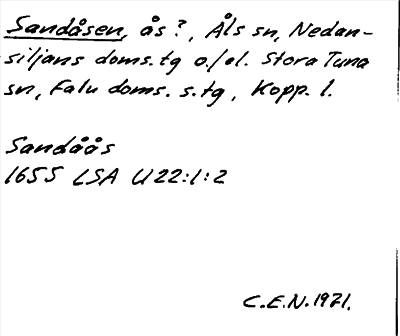 Sandåsen, ås?, Åls sn, Nedan-
siljans doms.tg o./el. Stora Tuna
sn, Falu doms. s.tg, Kopp. l.
Sandåås
1655 LSA U22:1:2
C.E.N. 1971.